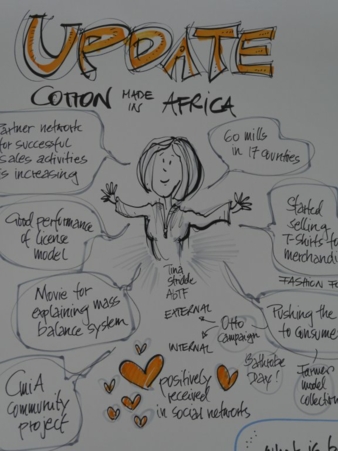 UPDATE
COTTON MADE IN AFRICA
Partner network
for successful
sales activities
is increasing
60 mills
in 17 countries
Good performance
of license
model
Started
selling
T-Shirts fo
merchandi
FASHION FO
Movie for
explaining mass
balance system
Tina
Stridde
AbTF
EXTERNAL
INTERNAL
Otto
Campaign
Pushing the
to consume
Bathrobe
Day!
Farmer
model
collection
CmiA
community
project
positively
received
in social networks